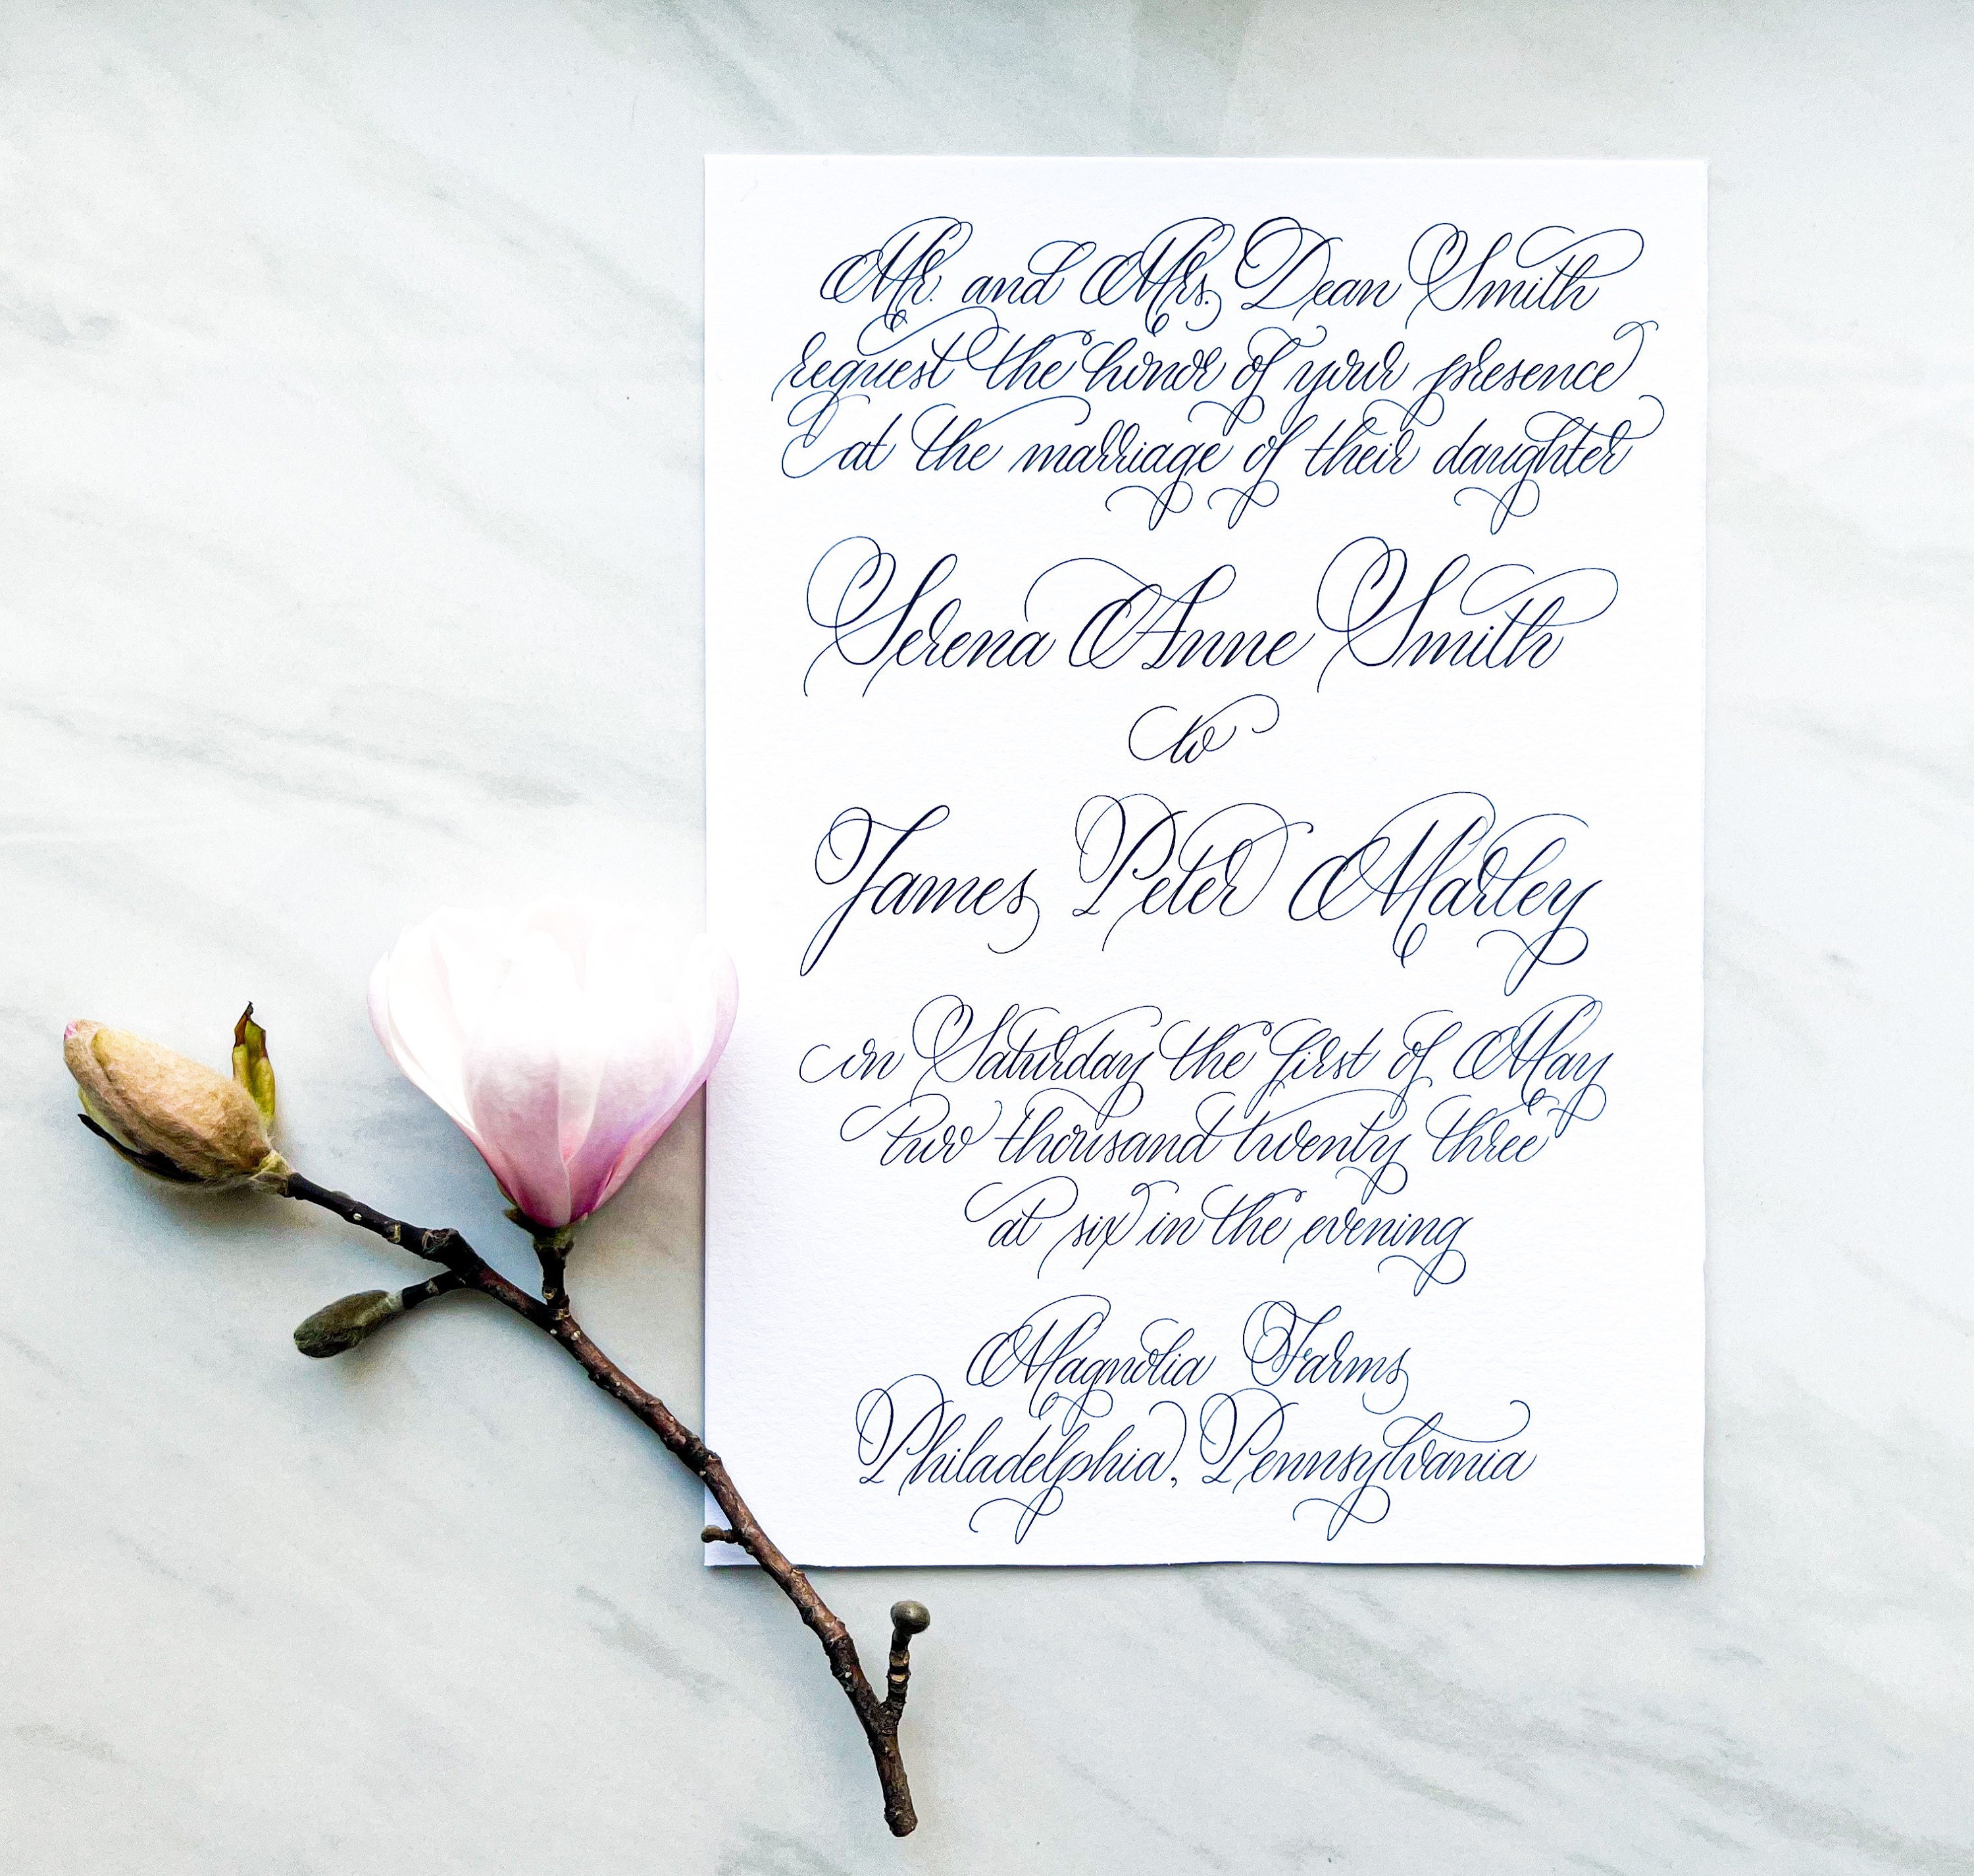 Mr. and Mrs. Dean Smith
request the honor of your presence
at the marriage of their daughter
Serena Anne Smith
to
James Peter Marley
on Saturday the first of May
two thousand twenty three
at six in the evening
Magnolia Farms
Philadelphia, Pennsylvania